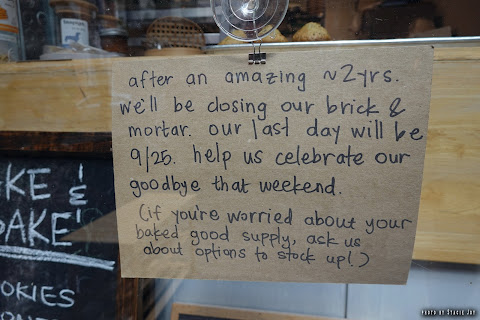 after an amazing ~2yrs.
we'll be closing our brick &
mortar. our last day will be
9/25. help us celebrate our
goodbye that weekend.
(if you're worried about your
baked good supply, ask us
about options to stock up!)
KE &
AKE
OKIES
PHOTO BY STACIE JOY